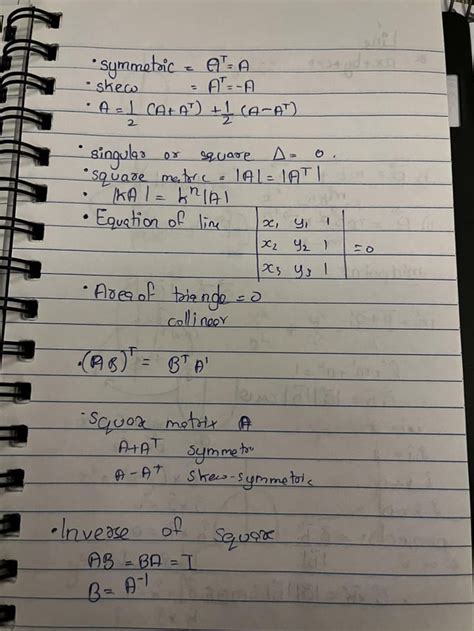 • symmetric = Aᵀ = A
• skew = Aᵀ = -A
• A = 1/2 (A+Aᵀ) + 1/2 (A-Aᵀ)
• singular or square Δ = 0.
• square matric = |A| = |Aᵀ|
• |KA| = kⁿ|A|
• Equation of line | x₁ y₁ 1 |
| x₂ y₂ 1 | = 0
| x₃ y₃ 1 |
• Area of triangle = 0
collinear
• (AB)ᵀ = Bᵀ A'
• Square matrix A
A+Aᵀ symmetric
A-Aᵀ skew-symmetric
• Inverse of square
AB = BA = I
B = A⁻¹